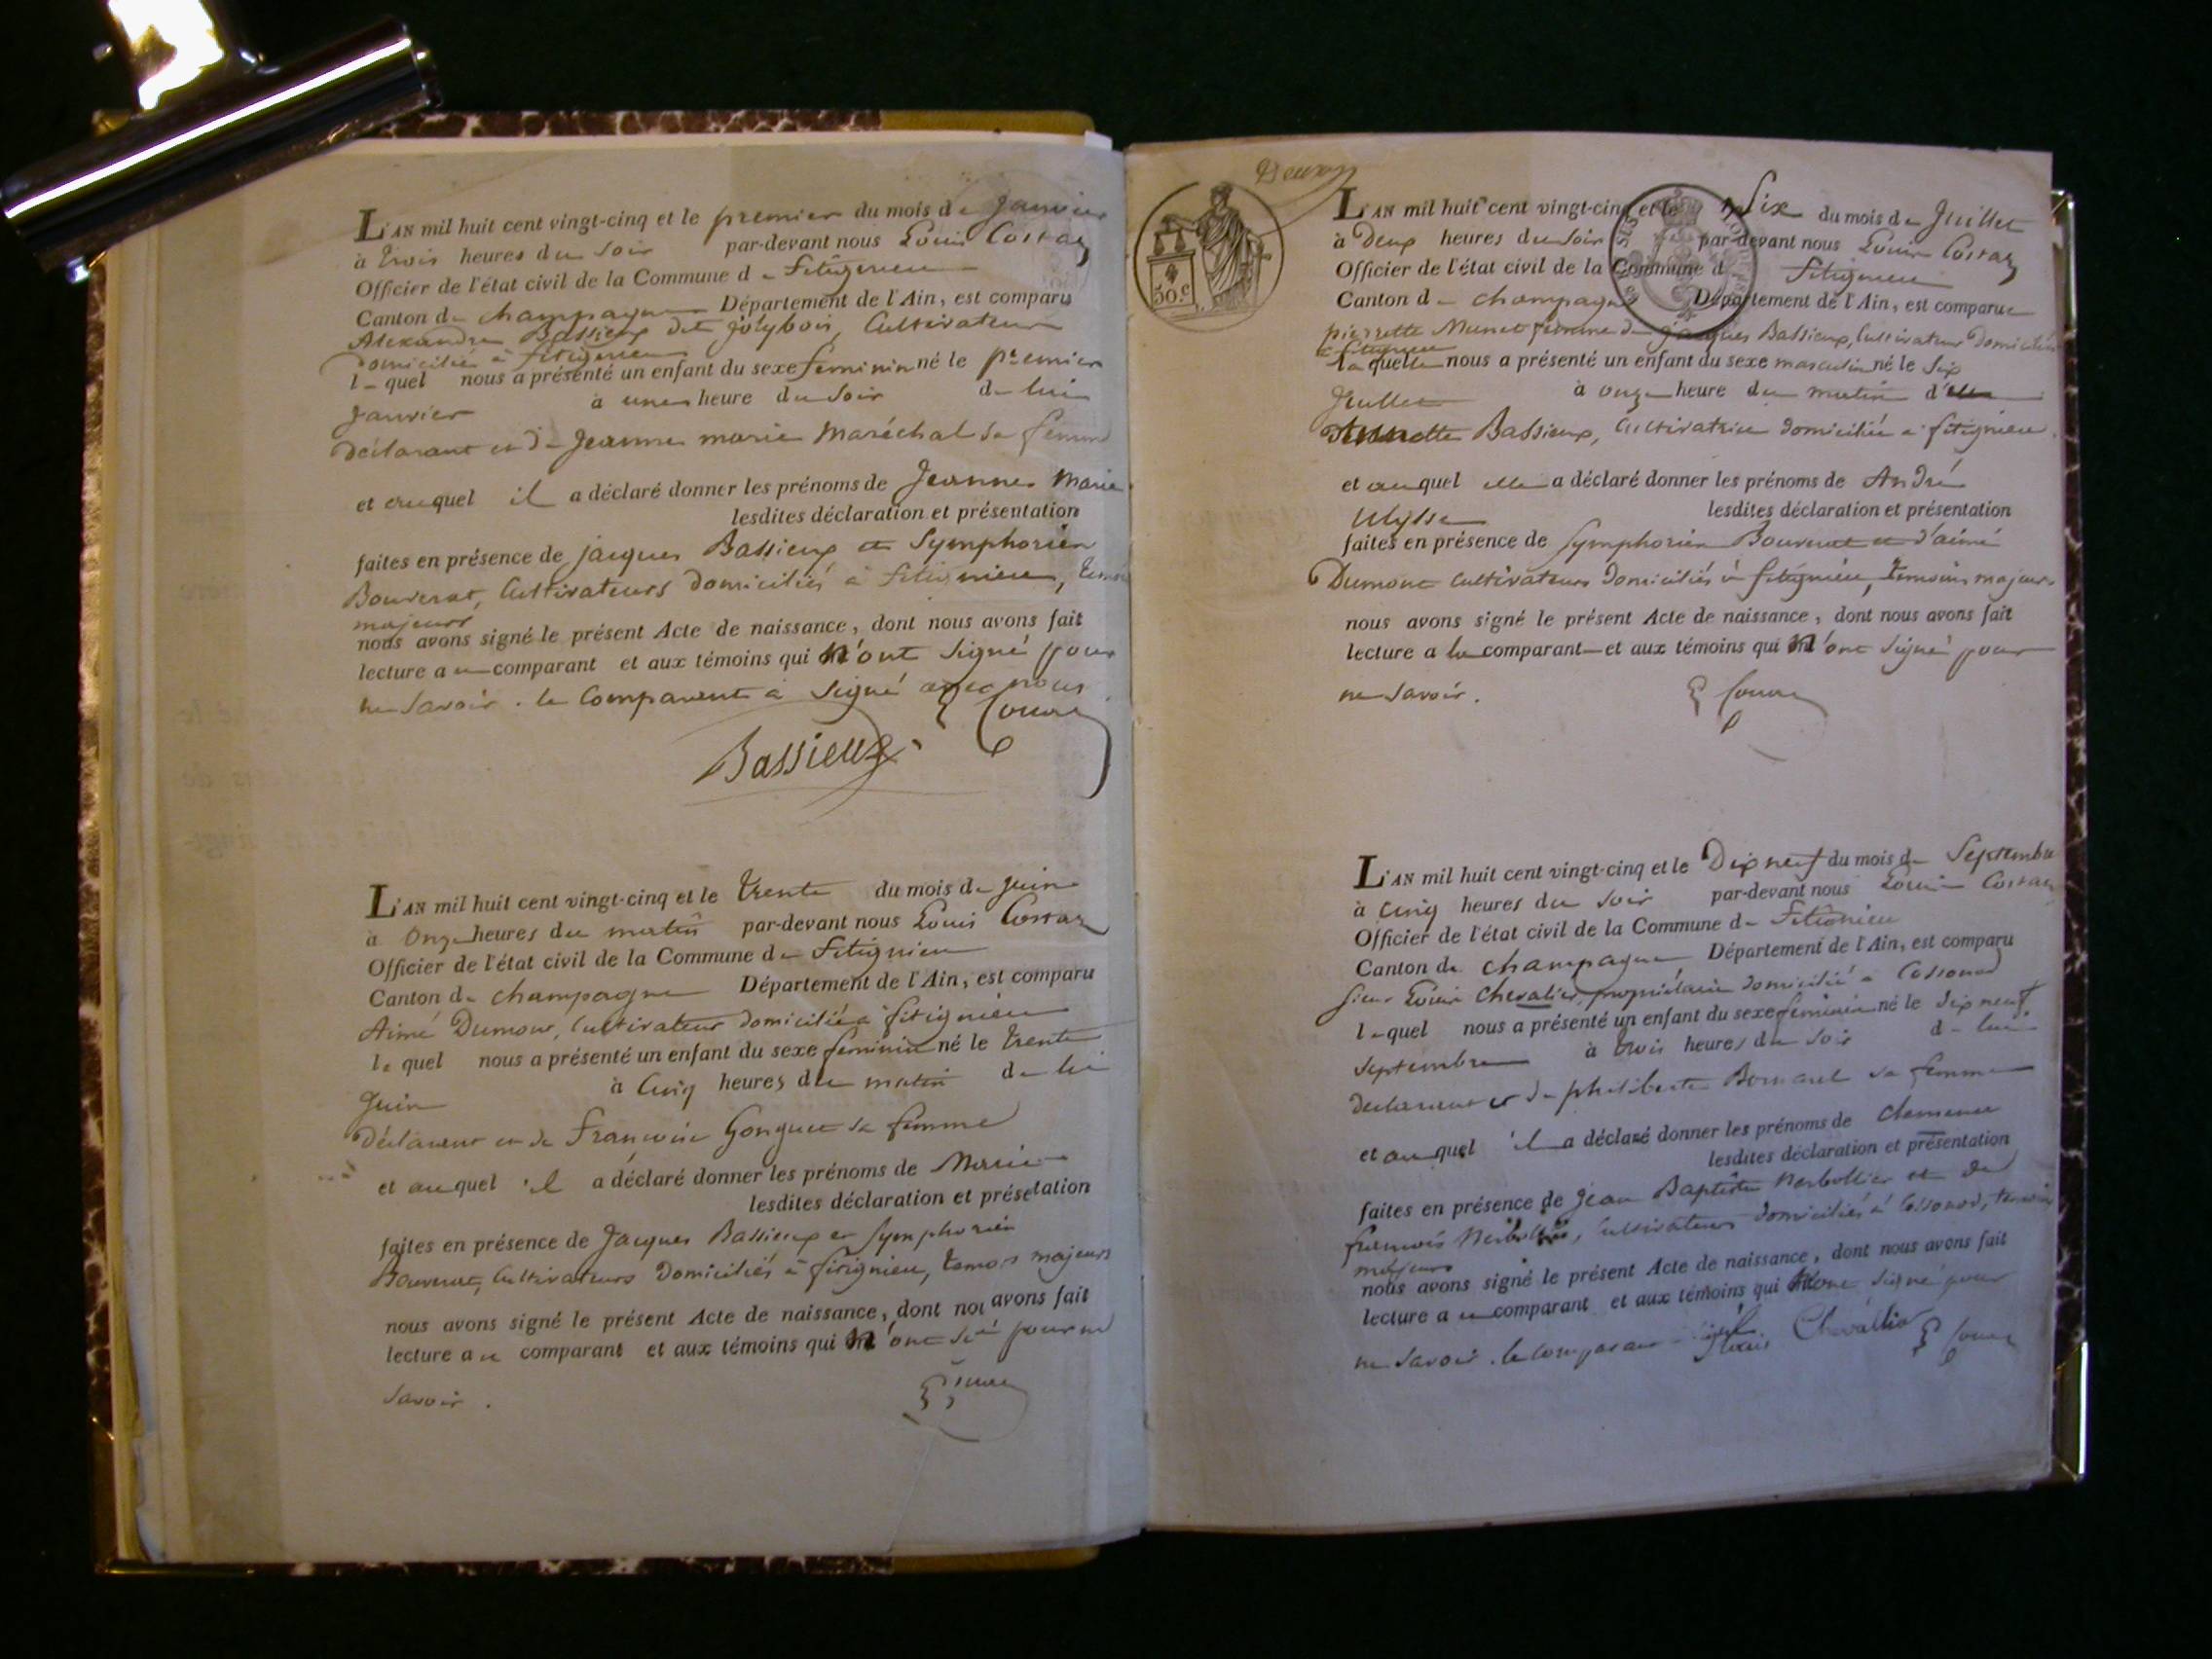 L'AN mil huit cent vingt-cinq et le premier du mois de Janvier
à trois heures du soir par-devant nous Louis Costaz
Officier de l'état civil de la Commune de fitignieu
Canton de champagne Département de l'Ain, est comparu
Alexandre Bassieux dit jolybois, Cultivateur
domicilié à fitignieu
le quel nous a présenté un enfant du sexe feminin né le premier
Janvier à une heure du soir de lui
déclarant et de Jeanne marie Maréchal sa femme
et auquel il a déclaré donner les prénoms de Jeanne Marie
lesdites déclaration et présentation
faites en présence de jacques Bassieux et Symphorien
Bouverat, Cultivateurs domiciliés à fitignieu,
majeurs
nous avons signé le présent Acte de naissance, dont nous avons fait
lecture au comparant et aux témoins qui n'ont signé pour
ne savoir. le Comparant a signé avec nous
Bassieux
L'AN mil huit cent vingt-cinq et le trente du mois de Juin
à Onze heures du matin par-devant nous Louis Costaz
Officier de l'état civil de la Commune de fitignieu
Canton de champagne Département de l'Ain, est comparu
Aimé Dumont, Cultivateur domicilié à fitignieu
le quel nous a présenté un enfant du sexe feminin né le trente
Juin à Cinq heures du matin de lui
déclarant et de Francoise Gonguet sa femme
et auquel il a déclaré donner les prénoms de Marie
lesdites déclaration et présetation
faites en présence de Jacques Bassieux et Symphorien
Bouverat, Cultivateurs domiciliés à fitignieu, majeurs
nous avons signé le présent Acte de naissance, dont nou avons fait
lecture au comparant et aux témoins qui n'ont pour ne
savoir.
50.c
L'AN mil huit cent vingt-cinq et le Six du mois de Juillet
à deux heures du soir par-devant nous Louis Costaz
Officier de l'état civil de la Commune d fitignieu
Canton de champagne Département de l'Ain, est comparue
pierrette Munet femme de Jacques Bassieux, Cultivateur domicilié
à fitignieu
la quelle nous a présenté un enfant du sexe masculin né le six
Juillet à onze heure du matin d'elle
Bassieux, Cultivatrice domiciliée à fitignieu
et auquel elle a déclaré donner les prénoms de André
Ulysse lesdites déclaration et présentation
faites en présence de Symphorien Bouverat et d'aimé
Dumont Cultivateurs domiciliés à fitignieu, témoins majeurs
nous avons signé le présent Acte de naissance, dont nous avons fait
lecture a la comparante et aux témoins qui n'ont signé pour
ne savoir.
L'AN mil huit cent vingt-cinq et le Dix neuf du mois de Septembre
à cinq heures du soir par-devant nous Louis Costaz
Officier de l'état civil de la Commune de fitignieu
Canton de champagne Département de l'Ain, est comparu
sieur Louis Chevalier, propriétaire domicilié à Cossonod
le quel nous a présenté un enfant du sexe feminin né le dix neuf
Septembre à trois heures du soir de lui
déclarant et de philiberte sa femme
et auquel il a déclaré donner les prénoms de Clemence
lesdites déclaration et présentation
faites en présence de Jean Baptiste Merbollier et de
francois Merbollier, Cultivateurs domiciliés à Cossonod, témoins
majeurs
nous avons signé le présent Acte de naissance, dont nous avons fait
lecture au comparant et aux témoins qui n'ont signé pour
ne savoir. le comparant Chevallier